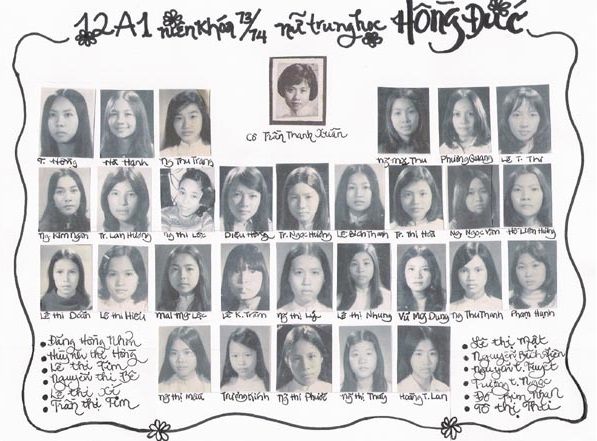 12A1 niên khóa 73/74 nữ trung học Hồng Đức
Cô Trần Thanh Xuân
T. Hồng Hà Hạnh Ng Thu Trang Ng Mộc Thu Phương Quang Lê T. Thi
Ng Kim Ngân Tr. Lan Hương Ng thị Lộc Diệu Hồng Tr. Ngọc Hương Lê Bích Thanh Tr. Thị Hoà Ng. Ngọc Vân Hồ Liên Hương
Lê thị Doãn Lê thị Hiếu Mai Mỹ Lộc Lê K. Trâm Ng thị Lý Lê thị Nhung Vũ Mỹ Dung Ng Thu Thanh Phạm Hạnh
Ng thị Mẫu Trương Định Ng thị Phước Ng thị Thủy Hoàng T. Lan
Đặng Hồng Nhựt
Huỳnh thị Hồng
Lê thị Tím
Nguyễn thị Bê
Lê thị
Trần thị Tím
thị Mặt
Nguyễn Bích
Nguyễn T. Tuyết
Tường T. Ngọc
Đỗ Kim Nhạn
Tô thị